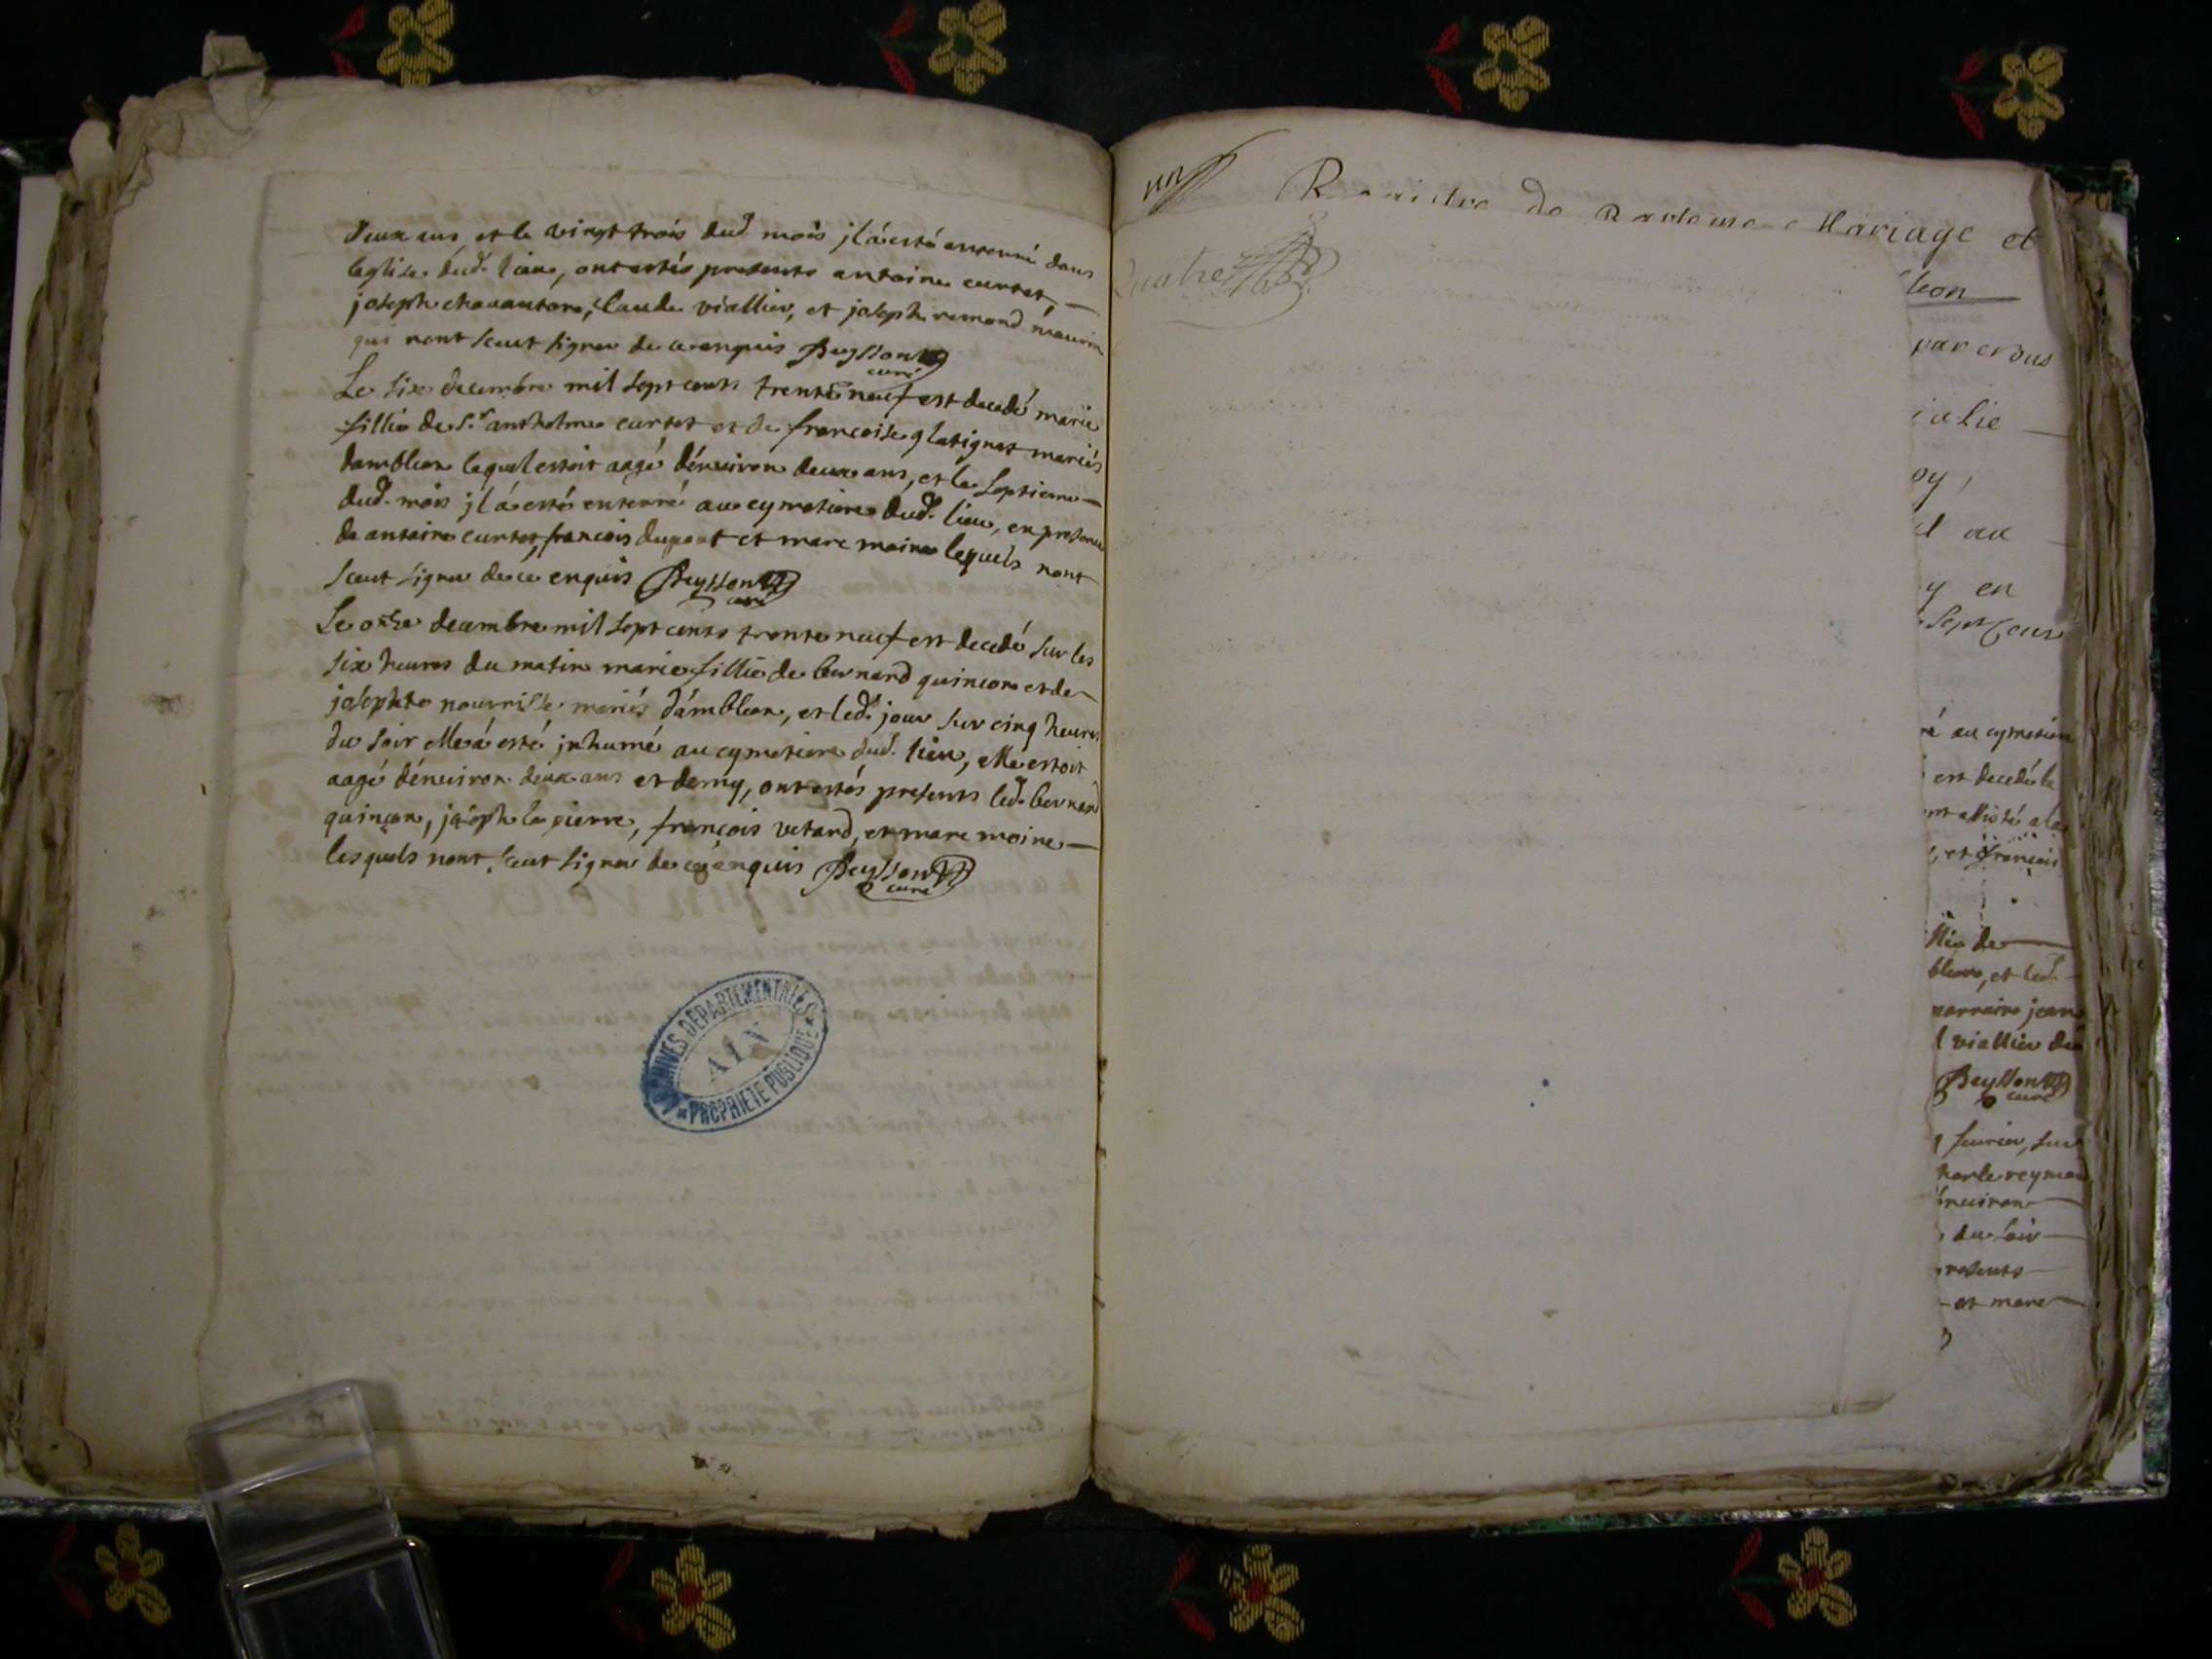 deux ans, et le vingt trois dud. mois jl á esté enterré dans
leglise dud. lieu, ont estés presents antoine curtet,
joseph chavantons, claude viallier, et joseph remond
qui nont sceut signer de ce enquis Beysson
curé
Le six decembre mil sept cents trente neuf est decedé marie
fillie de Sr. anthelme curtet et de francoise glatignat mariés
dambleon lequel estoit aagé dénuiron deux ans, et le septieme
dud. mois jl á esté enterré au cymetiere dud. lieu, en presence
de antoine curtet, francois dupont et marc moine lequels nont
sceut signer de ce enquis Beysson
curé
Le onze decembre mil sept cents trente neuf est decedé sur les
six heures du matin marie fillie de bernard quincon et de
josephte nourrisse mariés dámbleon, et led. jour sur cinq heures
du soir elle á esté jnhumé au cymetiere dud. lieu, elle estoit
aagé dénuiron deux ans et demy, ont estés presents led. bernard
quinçon, joseph la pierre, françois vetard, et marc moine
lesquels nont sceut signer de ce enquis Beysson
curé
ARCHIVES DEPARTEMENTALES
AIN
PROPRIETE PUBLIQUE
un
Quatre
Registre de Mariage et
leon
par
oy,
d au
y en
sept Cens
é au cymetiere
est decedé le
, et françois
llie de
bleon, et led.
parraine jean
l viallier
Beysson
curé
feurier, sur
énuiron
du soir
presents
et marc